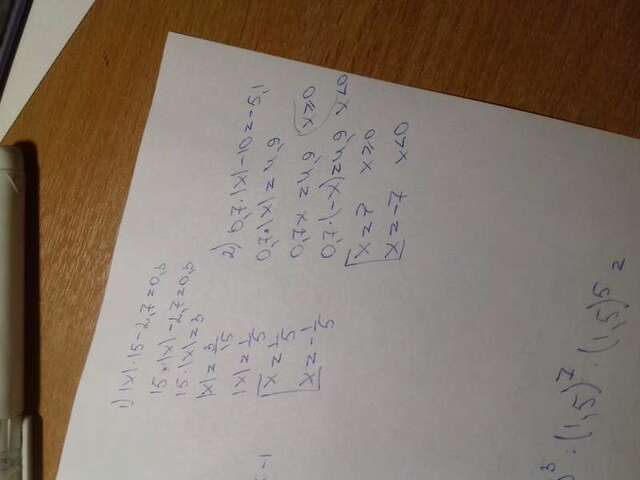 1) |x|·15-2,7=0,3
15·|x|-2,7=0,3
15·|x|=3
|x|=3/15
|x|=1/5
x=1/5
x=-1/5
2) 0,7·|x|-10=-5,1
0,7·|x|=4,9
0,7x=4,9 x≥0
0,7·(-x)=4,9 x<0
x=7 x≥0
x=-7 x<0
-1
)³·(1,5)⁷·(1,5)⁵=